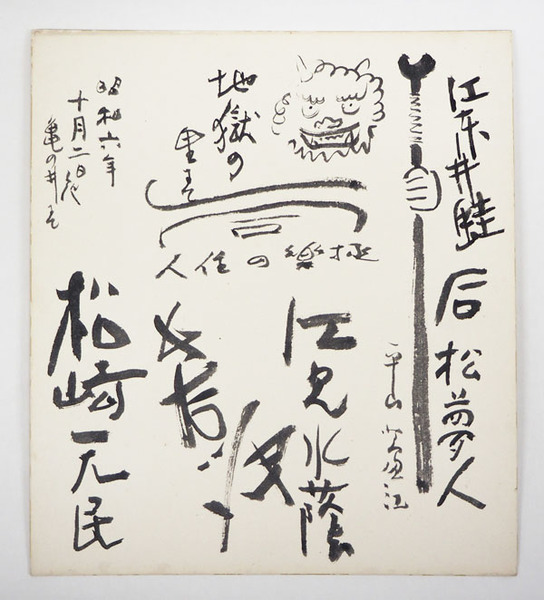 江東井蛙
石松夢人
平山蘆江
地獄の
里まで
極楽の住人
江見水蔭
昭和六年
十月二日夜
亀の井にて
松崎天民